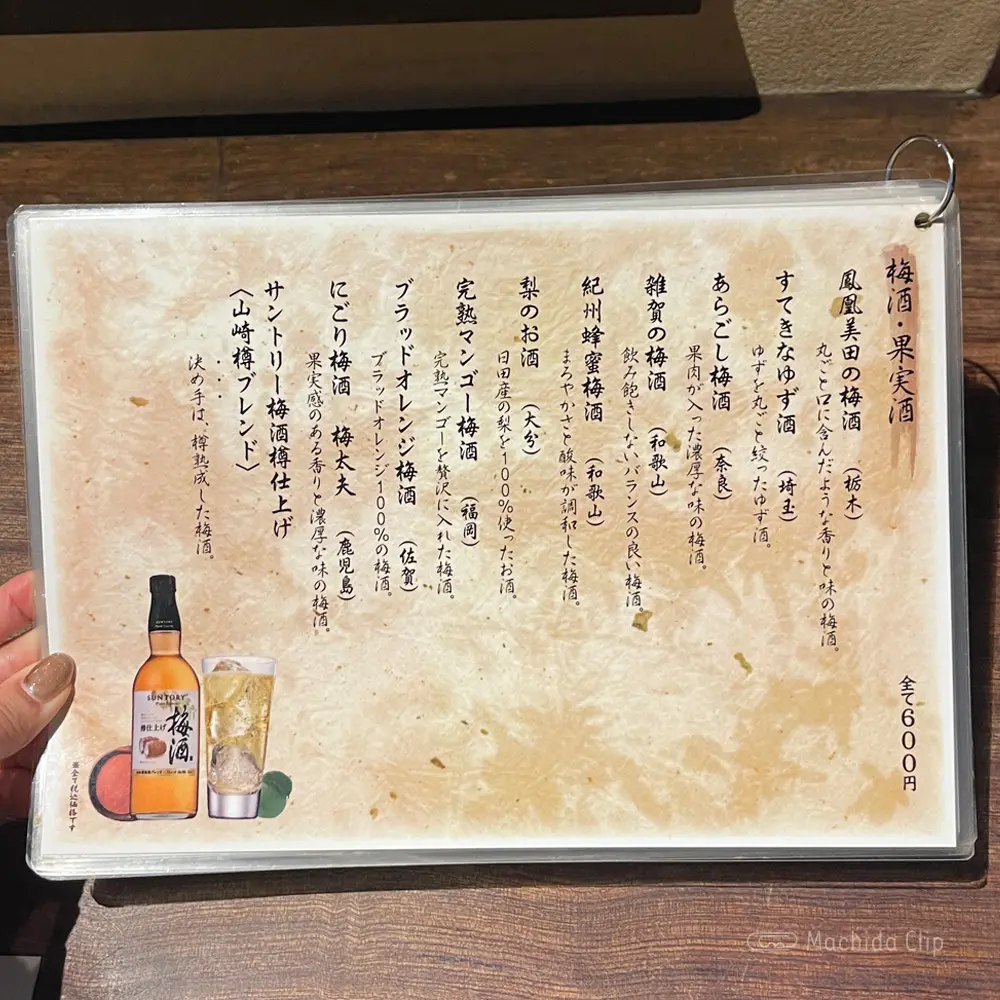 梅酒・果実酒
全て600円
鳳凰美田の梅酒 (栃木)
丸ごと口に含んだような香りと味の梅酒。
すてきなゆず酒 (埼玉)
ゆずを丸ごと絞ったゆず酒。
あらごし梅酒 (奈良)
果肉が入った濃厚な味の梅酒。
雑賀の梅酒 (和歌山)
飲み飽きしないバランスの良い梅酒。
紀州蜂蜜梅酒 (和歌山)
まろやかさと酸味が調和した梅酒。
梨のお酒 (大分)
日田産の梨を100%使ったお酒。
完熟マンゴー梅酒 (福岡)
完熟マンゴーを贅沢に入れた梅酒。
ブラッドオレンジ梅酒 (佐賀)
ブラッドオレンジ100%の梅酒。
にごり梅酒 梅太夫 (鹿児島)
果実感のある香りと濃厚な味の梅酒。
サントリー梅酒樽仕上げ
〈山崎樽ブレンド〉
決め手は、樽熟成した梅酒。
SUNTORY
梅酒
樽仕上げ
※全て税込価格です
Machida Clip